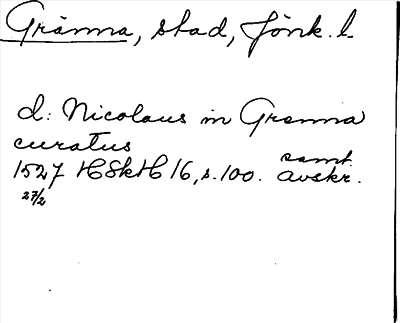 Gränna, stad, Jönk. l.
d: Nicolaus in Grenna
curatus
1527 HSkH 16, s. 100. samt. avskr.
27/2